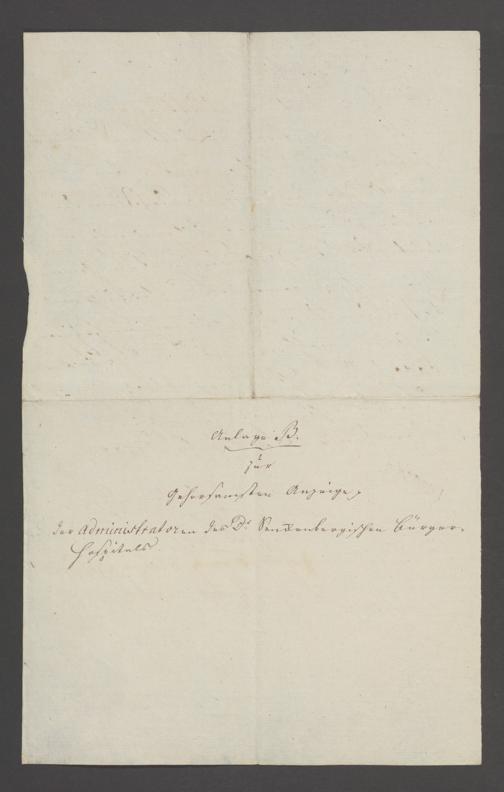 Anlage B.
zur
Gehorsamsten Anzeige,
der Administratoren des Dr. Senckenbergischen Bürger-
Hospitals